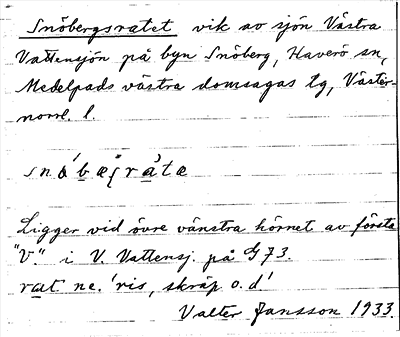 Snöbergsratet vik av sjön Västra
Vattensjön på byn Snöberg, Haverö sn,
Medelpads västra domsagas tg, Väster-
norrl. l.
Ligger vid övre vänstra hörnet av första
"V." i V. Vattensj. på G 73.
rat. ne. 'ris, skräp o.d'
Valter Jansson 1933.